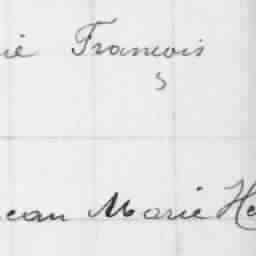 ie François
s
ean Marie He